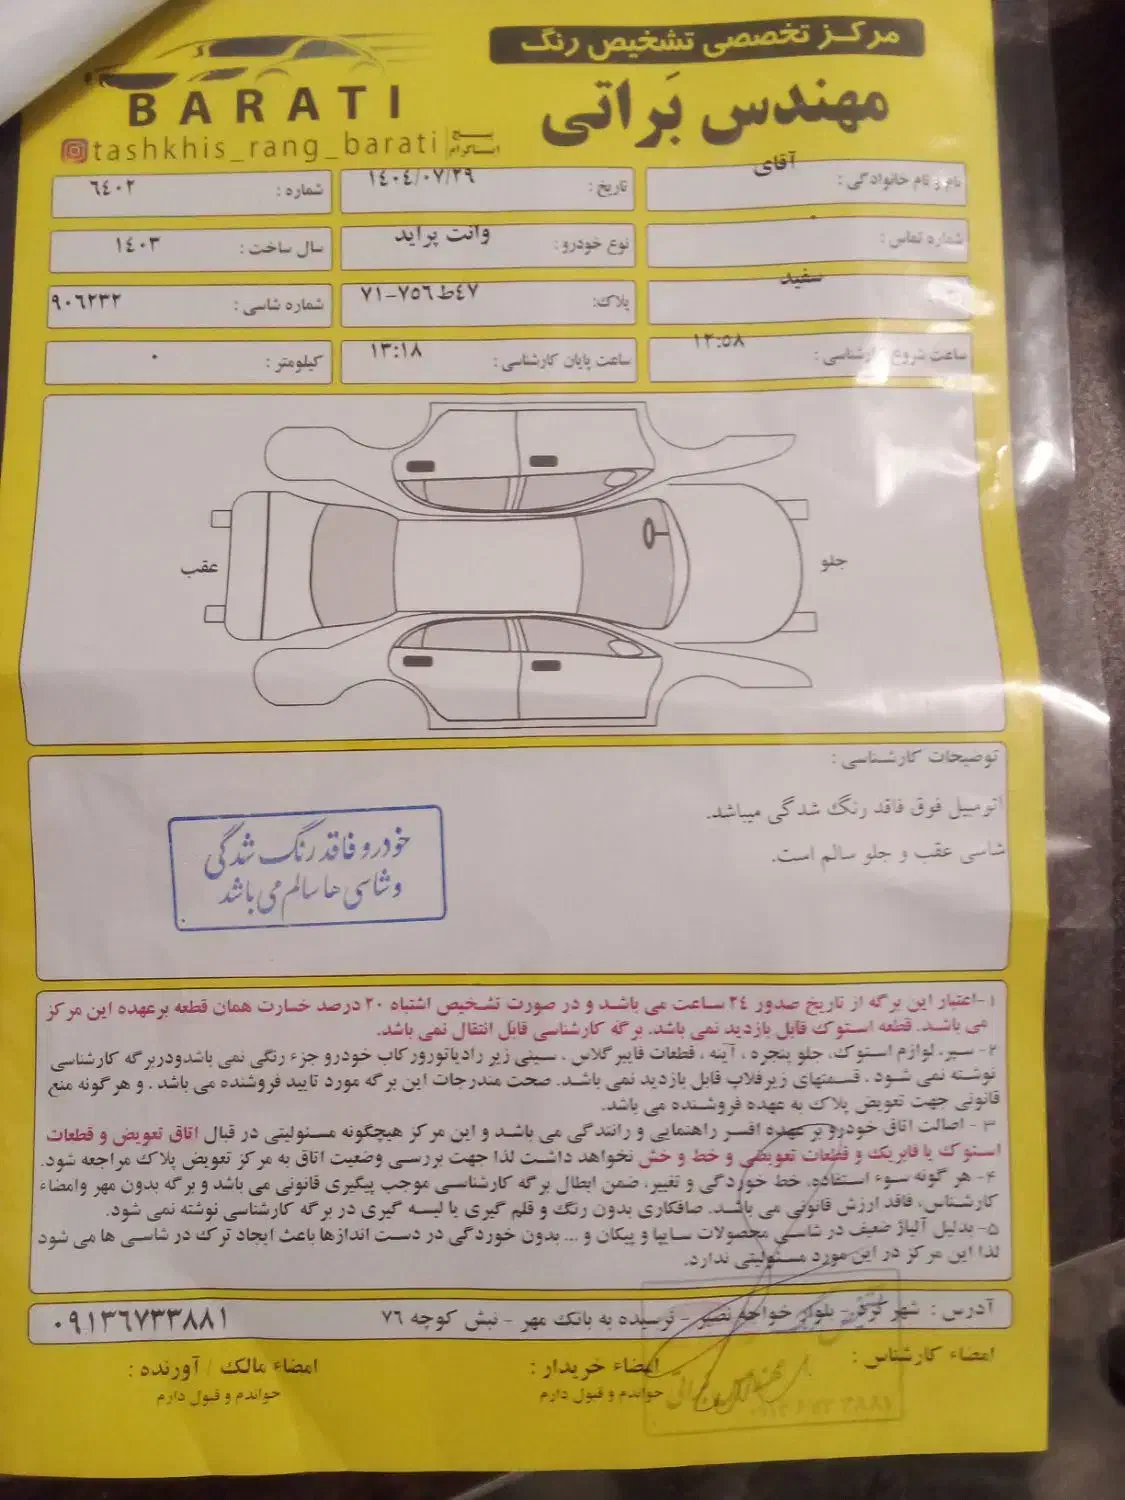 مرکز تخصصی تشخیص رنگ
مهندس بَراتی
BARATI
tashkhis_rang_barati پیج اینستاگرام
نام و نام خانوادگی : آقای
تاریخ : ۱٤۰٤/۰۷/۲۹
شماره : ٦٤۰۲
شماره تماس : ۰
نوع خودرو : وانت پراید
سال ساخت : ۱٤۰۳
سفید
پلاک: ٤۷ط۷۵٦-۷۱
شماره شاسی : ۹۰٦۲۳۲
ساعت شروع کارشناسی : ۱۲:۵۸
ساعت پایان کارشناسی : ۱۳:۱۸
کیلومتر : ۰
جلو
عقب
توضیحات کارشناسی :
اتومبیل فوق فاقد رنگ شدگی میباشد.
شاسی عقب و جلو سالم است.
خودرو فاقد رنگ شدگی
و شاسی ها سالم می باشد
۱-اعتبار این برگه از تاریخ صدور ۲٤ ساعت می باشد و در صورت تشخیص اشتباه ۲۰ درصد خسارت همان قطعه برعهده این مرکز
می باشد. قطعه استوک قابل بازدید نمی باشد. برگه کارشناسی قابل انتقال نمی باشد.
۲- سپر، لوازم استوک، جلو پنجره ، آینه ، قطعات فایبر گلاس ، سینی زیر رادیاتورورکاب خودرو جزء رنگی نمی باشدودربرگه کارشناسی
نوشته نمی شود . قسمتهای زیرفلاپ قابل بازدید نمی باشد. صحت مندرجات این برگه مورد تایید فروشنده می باشد . و هر گونه منع
قانونی جهت تعویض پلاک به عهده فروشنده می باشد.
۳ - اصالت اتاق خودرو بر عهده افسر راهنمایی و رانندگی می باشد و این مرکز هیچگونه مسئولیتی در قبال اتاق تعویض و قطعات
استوک یا فابریک و قطعات تعویضی و خط و خش نخواهد داشت لذا جهت بررسی وضعیت اتاق به مرکز تعویض پلاک مراجعه شود.
۴- هر گونه سوء استفاده، خط خوردگی و تغییر، ضمن ابطال برگه کارشناسی موجب پیگیری قانونی می باشد و برگه بدون مهر وامضاء
کارشناس، فاقد ارزش قانونی می باشد. صافکاری بدون رنگ و قلم گیری یا لیسه گیری در برگه کارشناسی نوشته نمی شود.
۵- بدلیل آلیاژ ضعیف در شاسی محصولات سایپا و پیکان و ... بدون خوردگی در دست اندازها باعث ایجاد ترک در شاسی ها می شود
لذا این مرکز در این مورد مسئولیتی ندارد.
آدرس : شهر کرد - بلوار خواجه نصیر - نرسیده به بانک مهر - نبش کوچه ۷۶ ۰۹۱۳۶۷۳۳۸۸۱
امضاء کارشناس : امضاء خریدار : امضاء مالک / آورنده :
خواندم و قبول دارم خواندم و قبول دارم